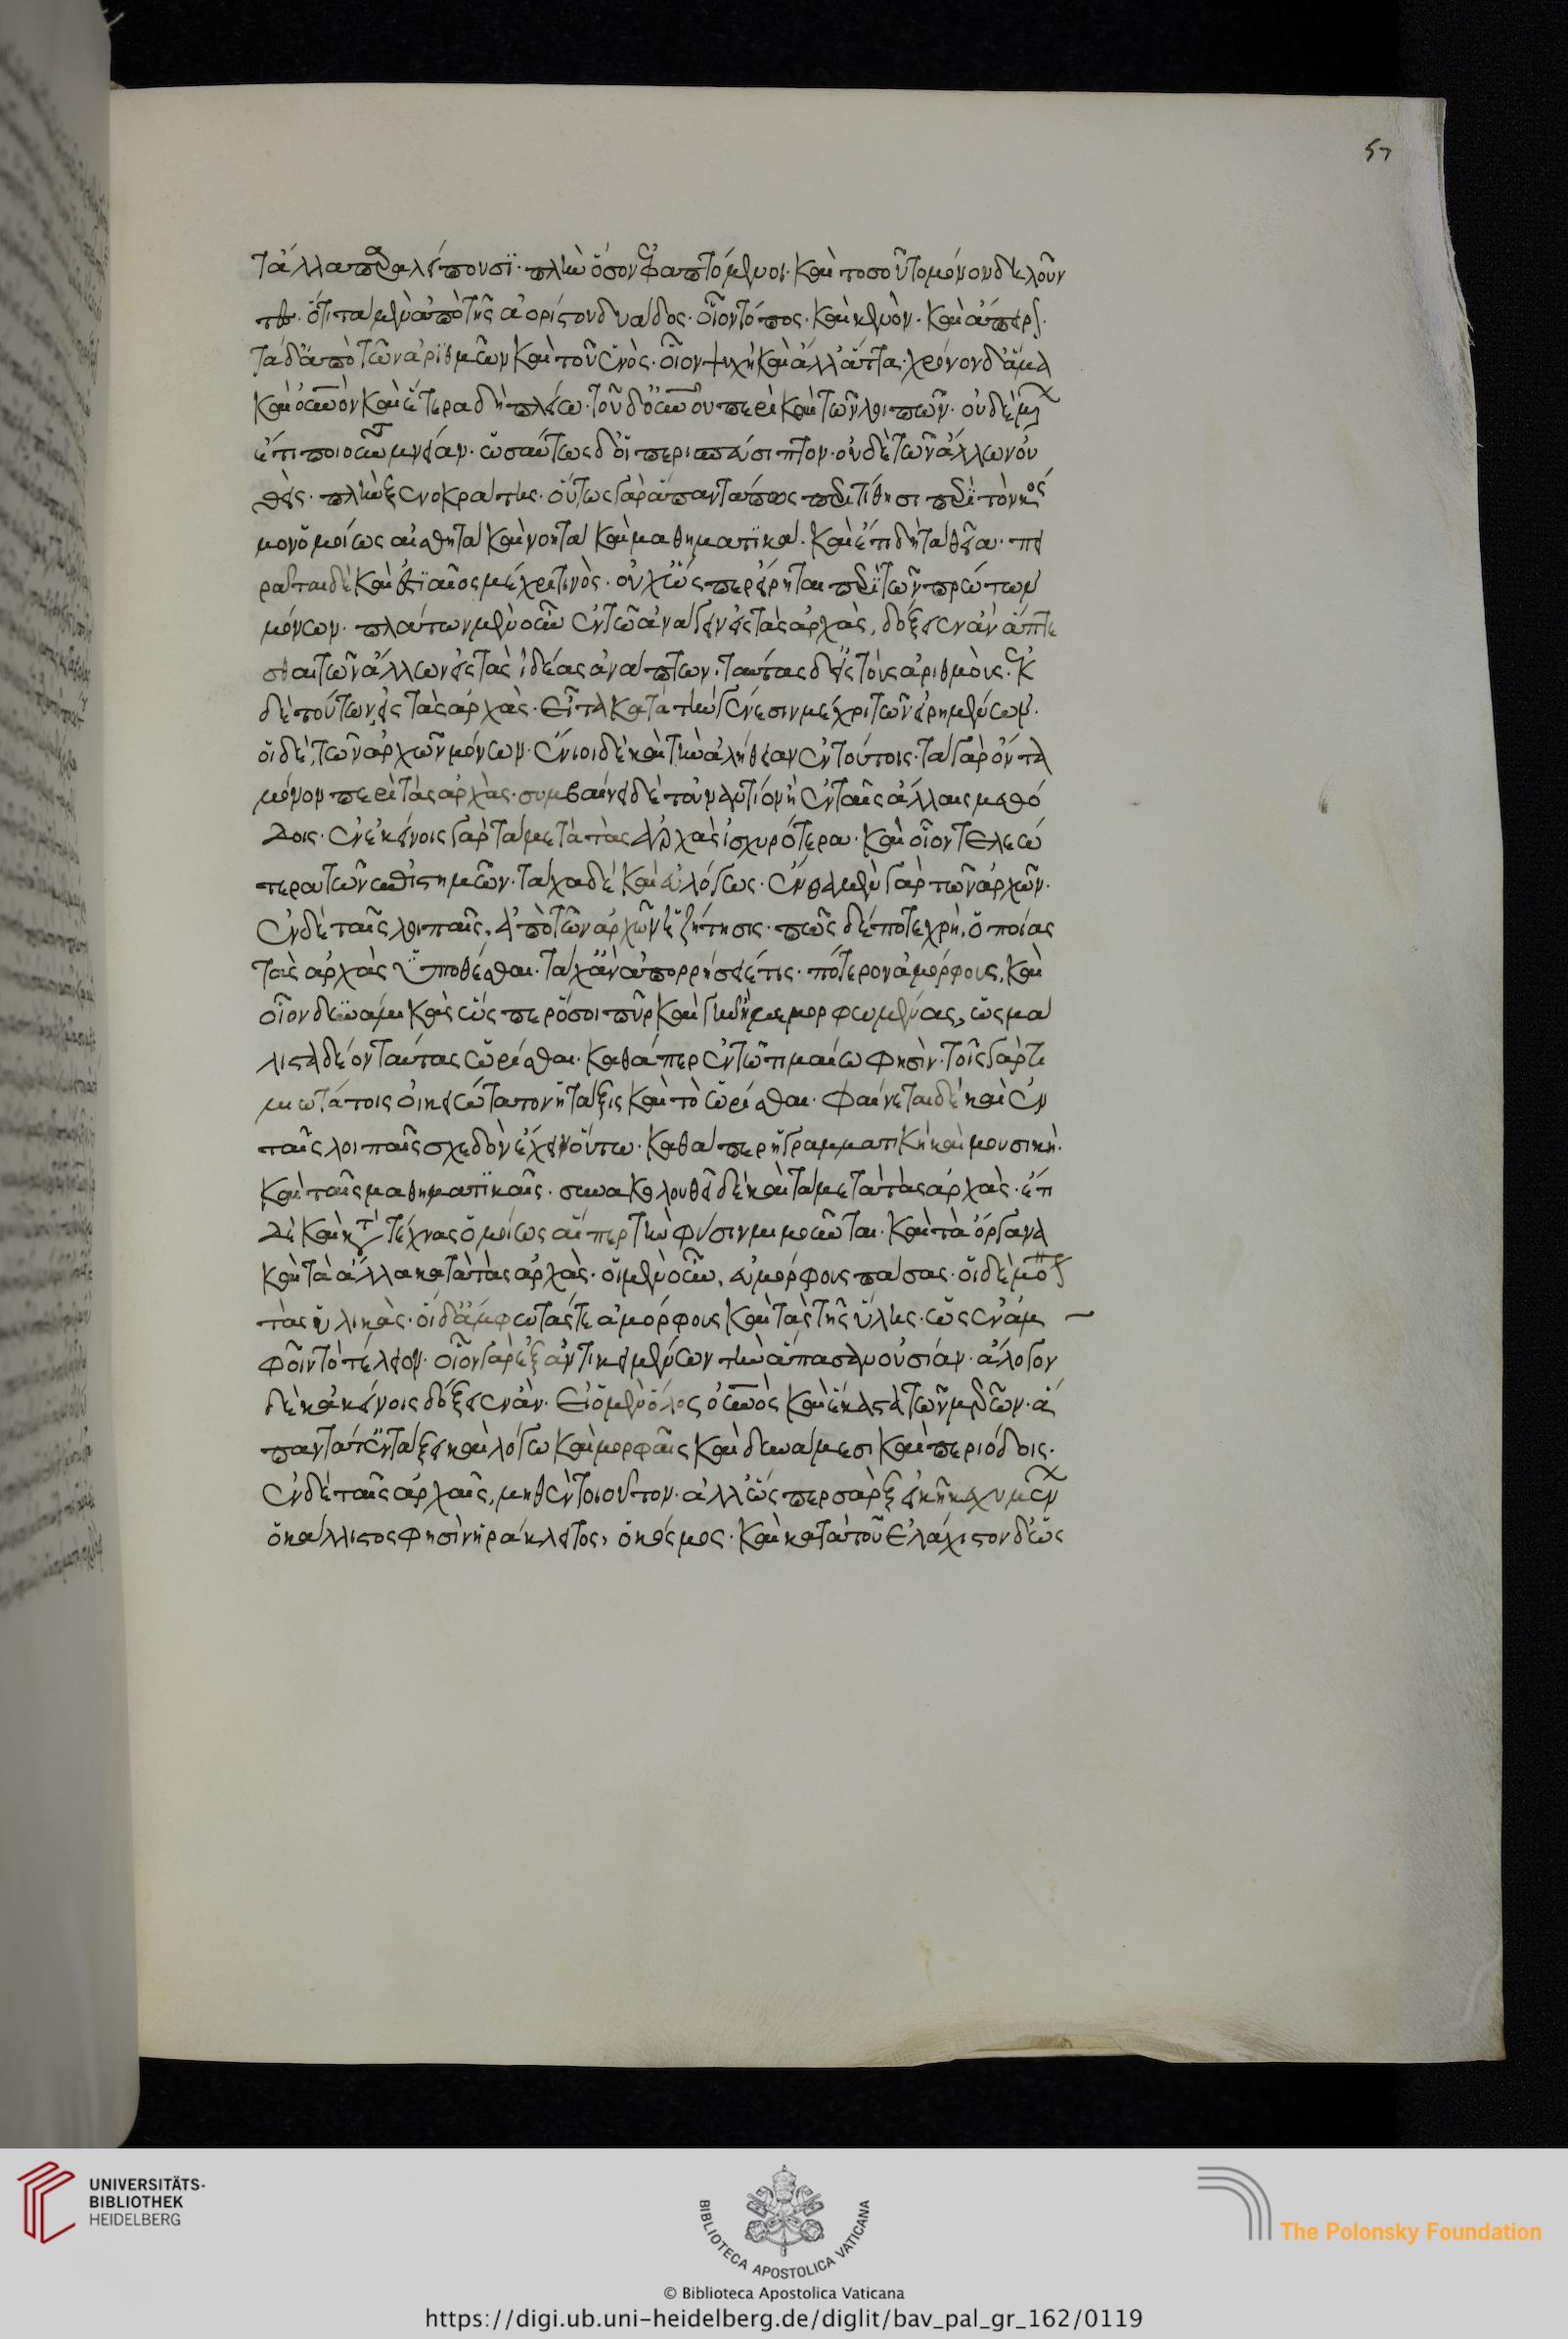 57
τἄλλα παραλείπουσϊ· πλὴν ὅσον ἐφαπτόμενοι· καὶ τοσοῦτο μόνον δηλοῦν
τες· ὅτι τὰ μὲν ἀπὸ τῆς ἀορίστου δυάδος· οἷον τόπος· καὶ κενὸν· καὶ ἄπειρον·
τὰ δ' ἀπὸ τῶν ἀριθμῶν καὶ τοῦ ἑνὸς· οἷον ψυχὴ καὶ ἄλλ' ἄττα· χρόνον δ' ἅμα
καὶ οὐρανὸν καὶ ἕτερα δὴ πλείω· τοῦ δ' οὐρανοῦ περὶ καὶ τῶν λοιπῶν· οὐδεμίαν
ἔτι ποιοῦνται μνείαν· ὡσαύτως δ' οἱ περὶ σπεύσιππον· οὐδὲ τῶν ἄλλων οὐ
θεὶς· πλὴν ξενοκράτης· οὗτος γὰρ ἅπαντά πως περιτίθησι περὶ τὸν κόσ
μον ὁμοίως αἰσθητὰ καὶ νοητὰ καὶ μαθηματϊκὰ· καὶ ἔτι δὴ τὰ θεῖα· πει
ρᾶται δὲ καὶ ἑστϊαῖος μέχρι τινὸς· οὐχ ὥσπερ εἴρηται περὶ τῶν πρώτων
μόνων· πλάτων μὲν οὖν ἐν τῷ ἀνάγειν εἰς τὰς ἀρχὰς, δόξειεν ἂν ἅπτε
σθαι τῶν ἄλλων εἰς τὰς ἰδέας ἀνάπτων· ταύτας δ' εἰς τοὺς ἀριθμοὺς· ἐκ
δὲ τούτων εἰς τὰς ἀρχὰς· εἶτα κατὰ τὴν γένεσιν μέχρι τῶν εἰρημένων·
οἱ δὲ, τῶν ἀρχῶν μόνων· ἔνιοι δὲ καὶ τὴν ἀλήθειαν ἐν τούτοις· τὰ γὰρ ὄντα
μόνον περὶ τὰς ἀρχὰς· συμβαίνει δὲ τοὐναντίον ἢ ἐν ταῖς ἄλλαις μεθό
δοις· ἐν ἐκείνοις γὰρ τὰ μετὰ τὰς ἀρχὰς ἰσχυρότερα· καὶ οἷον τελεώ
τερα τῶν ἐπιστημῶν· τάχα δὲ καὶ εὐλόγως· ἔνθα μὲν γὰρ τῶν ἀρχῶν·
ἐν δὲ ταῖς λοιπαῖς, ἀπὸ τῶν ἀρχῶν ἡ ζήτησις· πῶς δέ ποτε χρὴ, ὁποίας
τὰς ἀρχὰς ὑποθέσθαι· τάχ' ἂν ἀπορρήσειέ τις· πότερον ἀμόρφους, καὶ
οἷον δυναμικὰς ὥσπερ ὅσοι πῦρ καὶ γῆν ἢ μεμορφωμένας, ὡς μά
λιστα δέον ταύτας ὡρίσθαι· καθάπερ ἐν τῷ τιμαίω φησὶν· τοῖς γὰρ τι
μιωτάτοις οἰκειώτατον ἡ τάξις καὶ τὸ ὡρίσθαι· φαίνεται δὲ καὶ ἐν
ταῖς λοιπαῖς σχεδὸν ἔχειν οὕτω· καθάπερ ἡ γραμματικὴ καὶ μουσικὴ·
καὶ ταῖς μαθηματϊκαῖς· συνακολουθεῖ δὲ καὶ τὰ μετὰ τὰς ἀρχὰς· ἔτι
δὲ καὶ κατὰ τὰς τέχνας ὁμοίως αἵπερ τὴν φύσιν μιμοῦνται· καὶ τὰ ὄργανα
καὶ τὰ ἄλλα κατὰ τὰς ἀρχὰς· οἱ μὲν οὖν, ἐμμόρφους πάσας· οἱ δὲ μόνον
τὰς ὑλικὰς· οἱ δ' ἄμφω τάς τε ἐμμόρφους καὶ τὰς τῆς ὕλης· ὡς ἐν ἀμ
φοῖν τὸ τέλειον· οἷον γὰρ ἐξ ἀντικειμένων τὴν ἅπασαν οὐσίαν· ἄλογον
δὲ κἀκείνοις δόξειεν ἂν· εἰ ὁ μὲν ὅλος οὐρανὸς καὶ ἕκαστα τῶν μερῶν· ἅ
παντα ἐν τάξει καὶ λόγω καὶ μορφαῖς καὶ δυνάμεσι καὶ περιόδοις·
ἐν δὲ ταῖς ἀρχαῖς, μηθὲν τοιοῦτον· ἀλλ' ὥσπερ σὰρξ εἰκῆ κεχυμένων
ὁ κάλλιστος φησὶν ἡράκλειτος, ὁ κόσμος· καὶ κατὰ τοῦ ἐλάχιστον δ' ὡς
UNIVERSITÄTS-
BIBLIOTHEK
HEIDELBERG
BIBLIOTECA APOSTOLICA VATICANA
The Polonsky Foundation
© Biblioteca Apostolica Vaticana
https://digi.ub.uni-heidelberg.de/diglit/bav_pal_gr_162/0119